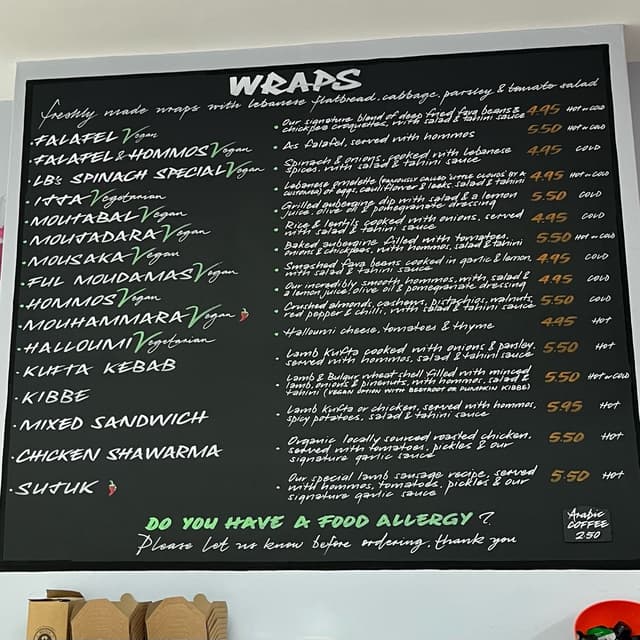 WRAPS
freshly made wraps with lebanese flatbread, cabbage, parsley & tomato salad
• FALAFEL Vegan • Our signature blend of deep fried fava beans & chickpea croquettes, with salad & tahini sauce 4.95 HOT or COLD
• FALAFEL & HOMMOS Vegan • As falafel, served with hommos 5.50 HOT or COLD
• LB's SPINACH SPECIAL Vegan • Spinach & onions, cooked with Lebanese spices, with salad & tahini sauce 4.95 COLD
• IJJA Vegetarian • Lebanese omelette (FAMOUSLY CALLED 'LITTLE CLOUDS' BY A CUSTOMER) of eggs, cauliflower & leeks, salad & tahini 4.95 HOT or COLD
• MOUTABAL Vegan • Grilled aubergine dip with salad & a lemon juice, olive oil & pomegranate dressing 5.50 COLD
• MOUJADARA Vegan • Rice & lentils cooked with onions, served with salad & tahini sauce 4.95 COLD
• MOUSAKA Vegan • Baked aubergine filled with tomatoes, onions & chickpeas, with hommos, salad & tahini 5.50 HOT or COLD
• FUL MOUDAMAS Vegan • Smashed fava beans cooked in garlic & lemon, with salad & tahini sauce 4.95 COLD
• HOMMOS Vegan • Our incredibly smooth hommos, with salad & a lemon juice, olive oil & pomegranate dressing 4.95 COLD
• MOUHAMMARA Vegan • Crushed almonds, cashews, pistachios, walnuts, red pepper & chilli, with salad & tahini sauce 5.50 COLD
• HALLOUMI Vegetarian • Halloumi cheese, tomatoes & thyme 4.95 HOT
• KUFTA KEBAB • Lamb kufta cooked with onions & parsley, served with hommos, salad & tahini sauce 5.50 HOT
• KIBBE • Lamb & Bulgur wheat shell filled with minced lamb, onions & pinenuts, with hommos, salad & tahini (VEGAN OPTION WITH BEETROOT OR PUMPKIN KIBBE) 5.50 HOT or COLD
• MIXED SANDWICH • Lamb kufta or chicken, served with hommos, spicy potatoes, salad & tahini sauce 5.95 HOT
• CHICKEN SHAWARMA • Organic locally sourced roasted chicken, served with tomatoes, pickles & our signature garlic sauce 5.50 HOT
• SUJUK • Our special lamb sausage recipe, served with hommos, tomatoes, pickles & our signature garlic sauce 5.50 HOT
DO YOU HAVE A FOOD ALLERGY ?
Please let us know before ordering, thank you
Arabic
COFFEE
2.50